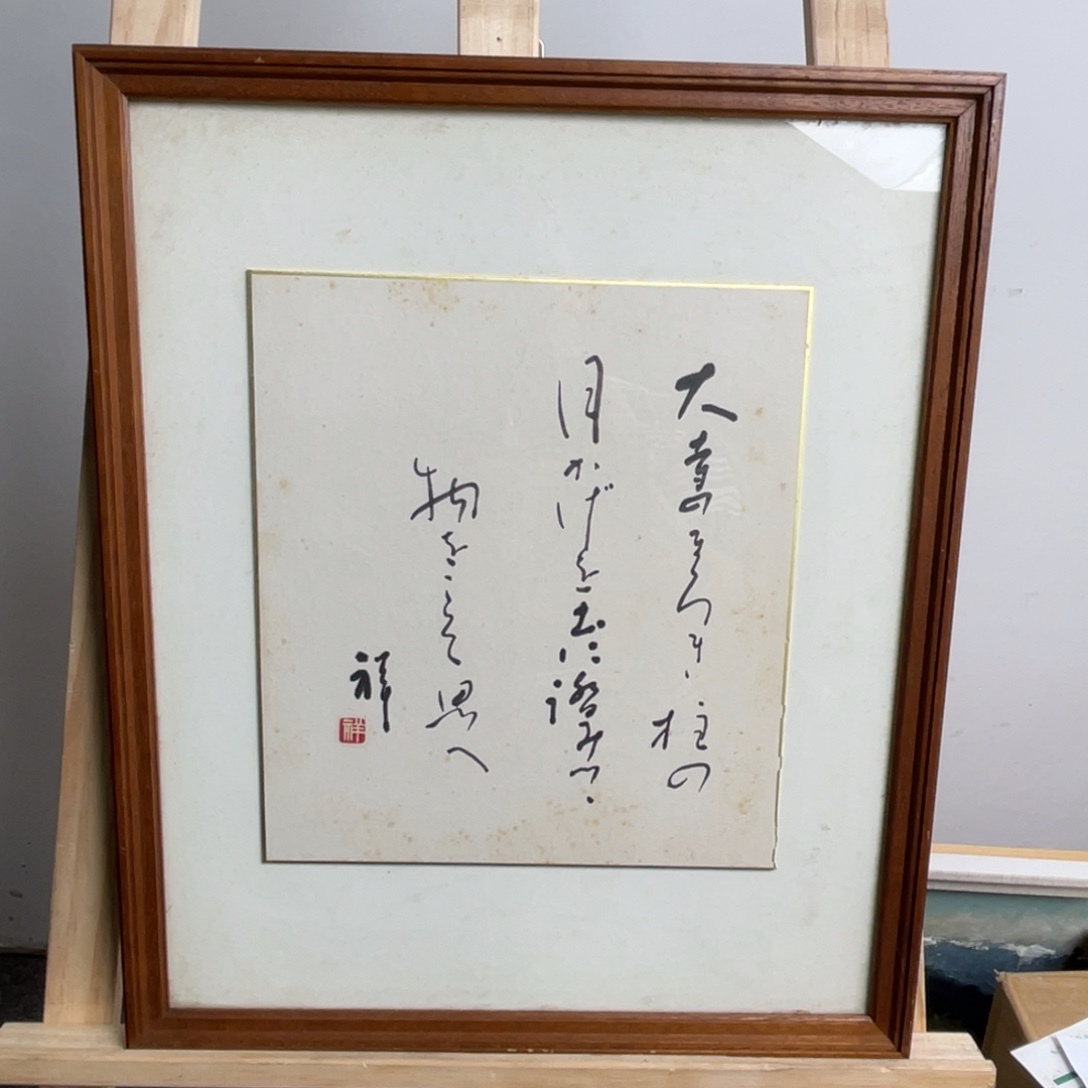 大寺のまろき柱の
月かげを土に踏みつゝ
物をこそ思へ
祥
祥